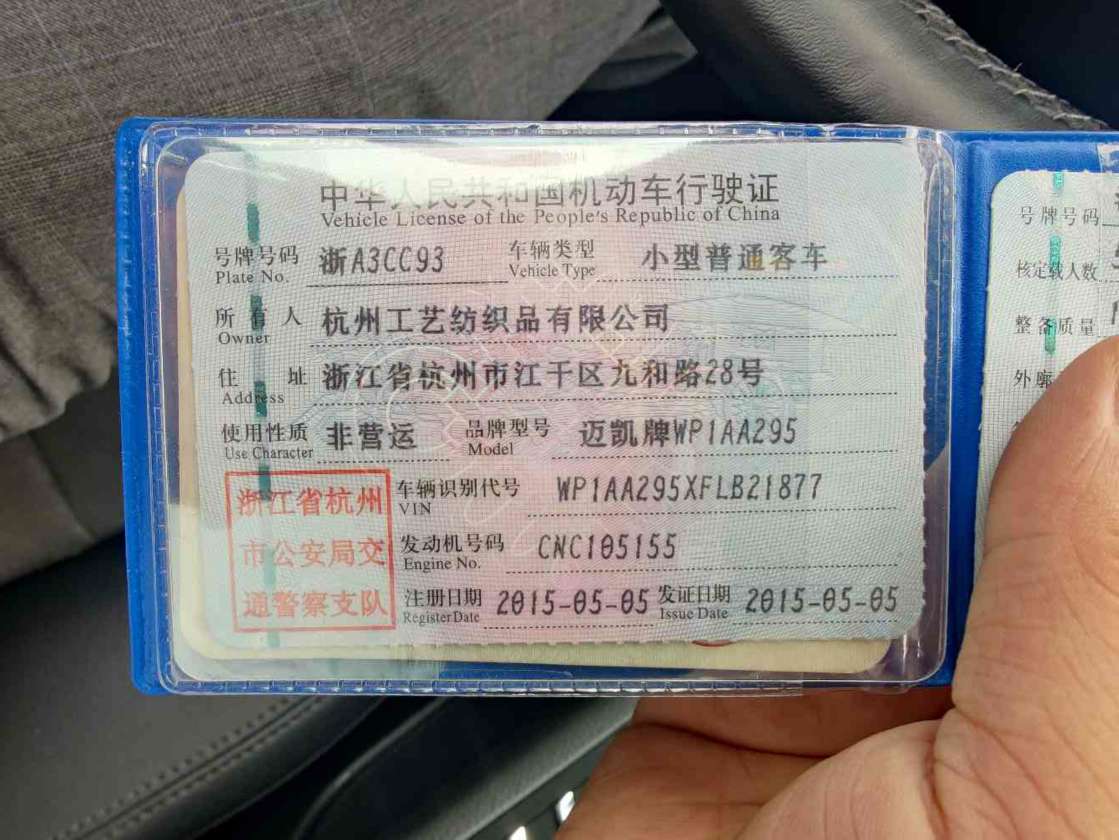 中华人民共和国机动车行驶证
Vehicle License of the People's Republic of China
号牌号码 浙A3CC93 车辆类型 小型普通客车
Plate No. Vehicle Type
所有人 杭州工艺纺织品有限公司
Owner
住址 浙江省杭州市江干区九和路28号
Address
使用性质 非营运 品牌型号 迈凯牌WP1AA295
Use Character Model
浙江省杭州
市公安局交
通警察支队
车辆识别代号 WP1AA295XFLB21877
VIN
发动机号码 CNC105155
Engine No.
注册日期 2015-05-05 发证日期 2015-05-05
Register Date Issue Date
号牌号码
核定载人数
整备质量
外廓